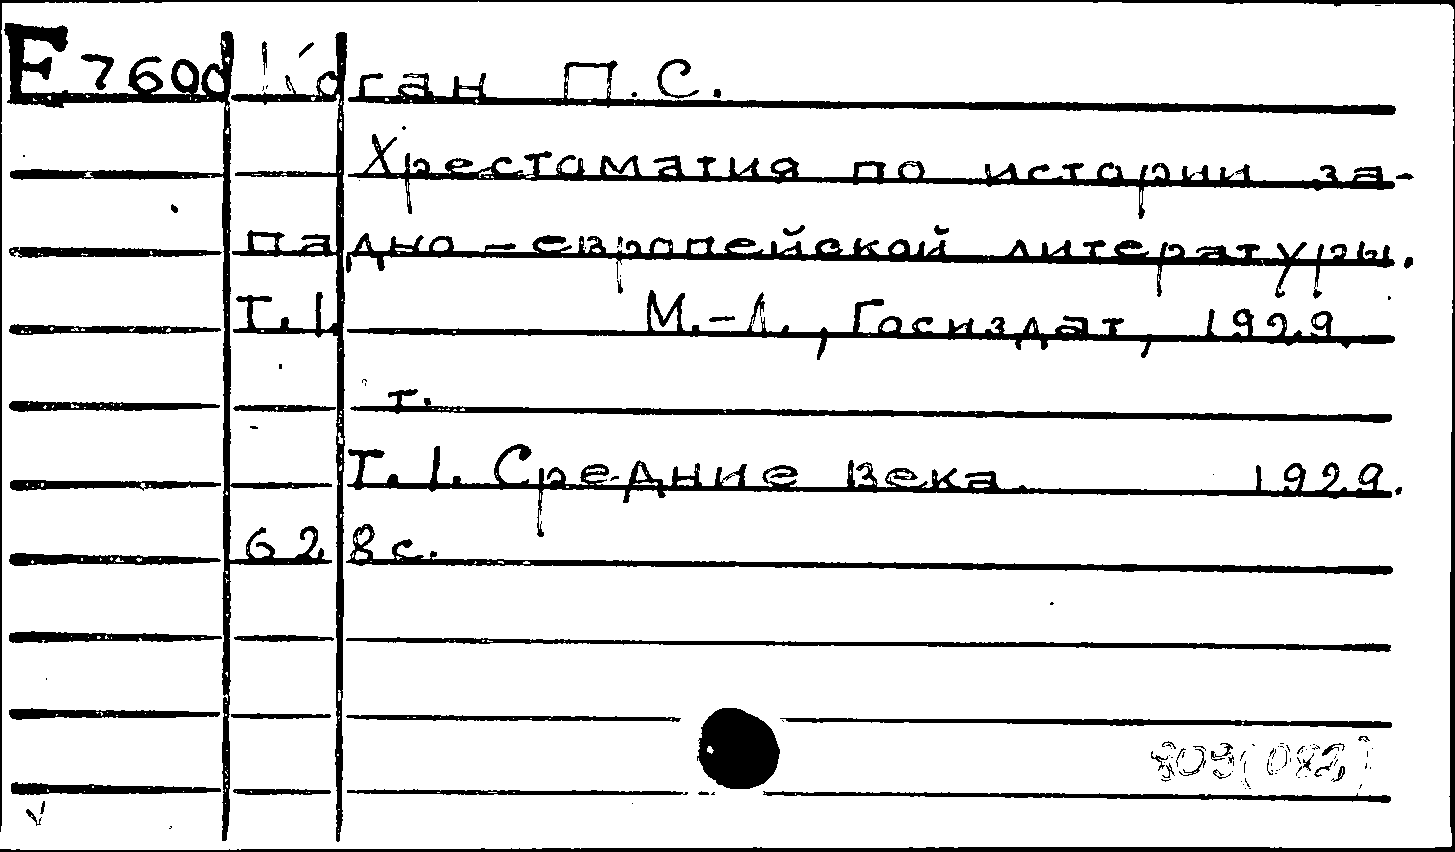 E 7600 Коган П.С.
Хрестоматия по истории за-
падно-европейской литературы.
Т.I. М.-Л., Госиздат, 1929.
т.
Т.I. Средние века. 1929.
628с.
809(082)